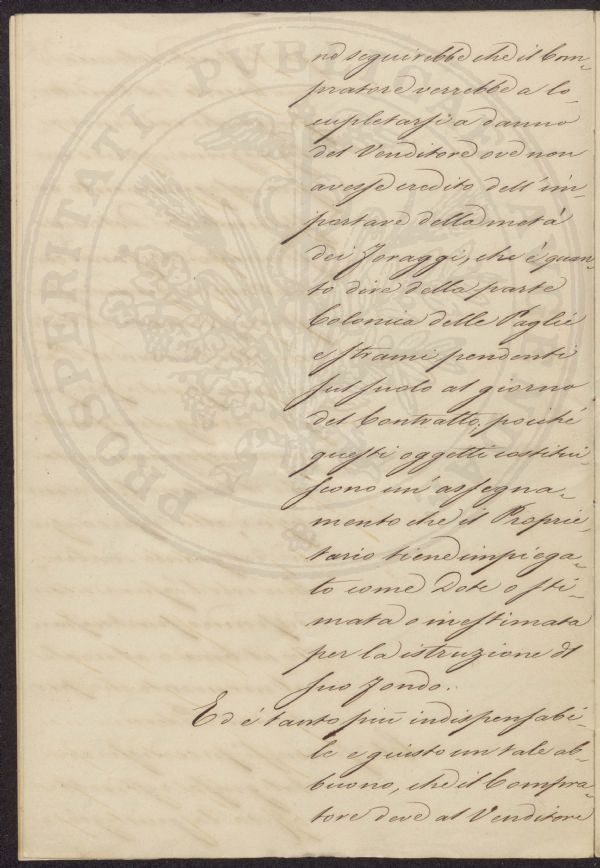 ne seguirebbe che il Com-
pratore verrebbe a lo-
cupletarsi a danno
del Venditore ove non
avesse credito dell' im-
portare della metà
dei Foraggi, che è quan-
to dire della parte
Colonica delle Paglie
e strami pendenti
sul suolo al giorno
del Contratto, poiché
questi oggetti costitui-
scono un' assegna-
mento che il Proprie-
tario tiene impiega-
to come Dote o sti-
mata o inestimata
per la istruzione di
suo fondo.
Ed é tanto più indispensabi-
le e giusto un tale ab-
buono, che il Compra-
tore deve al Venditore
PROSPERITATI PVBLICAE